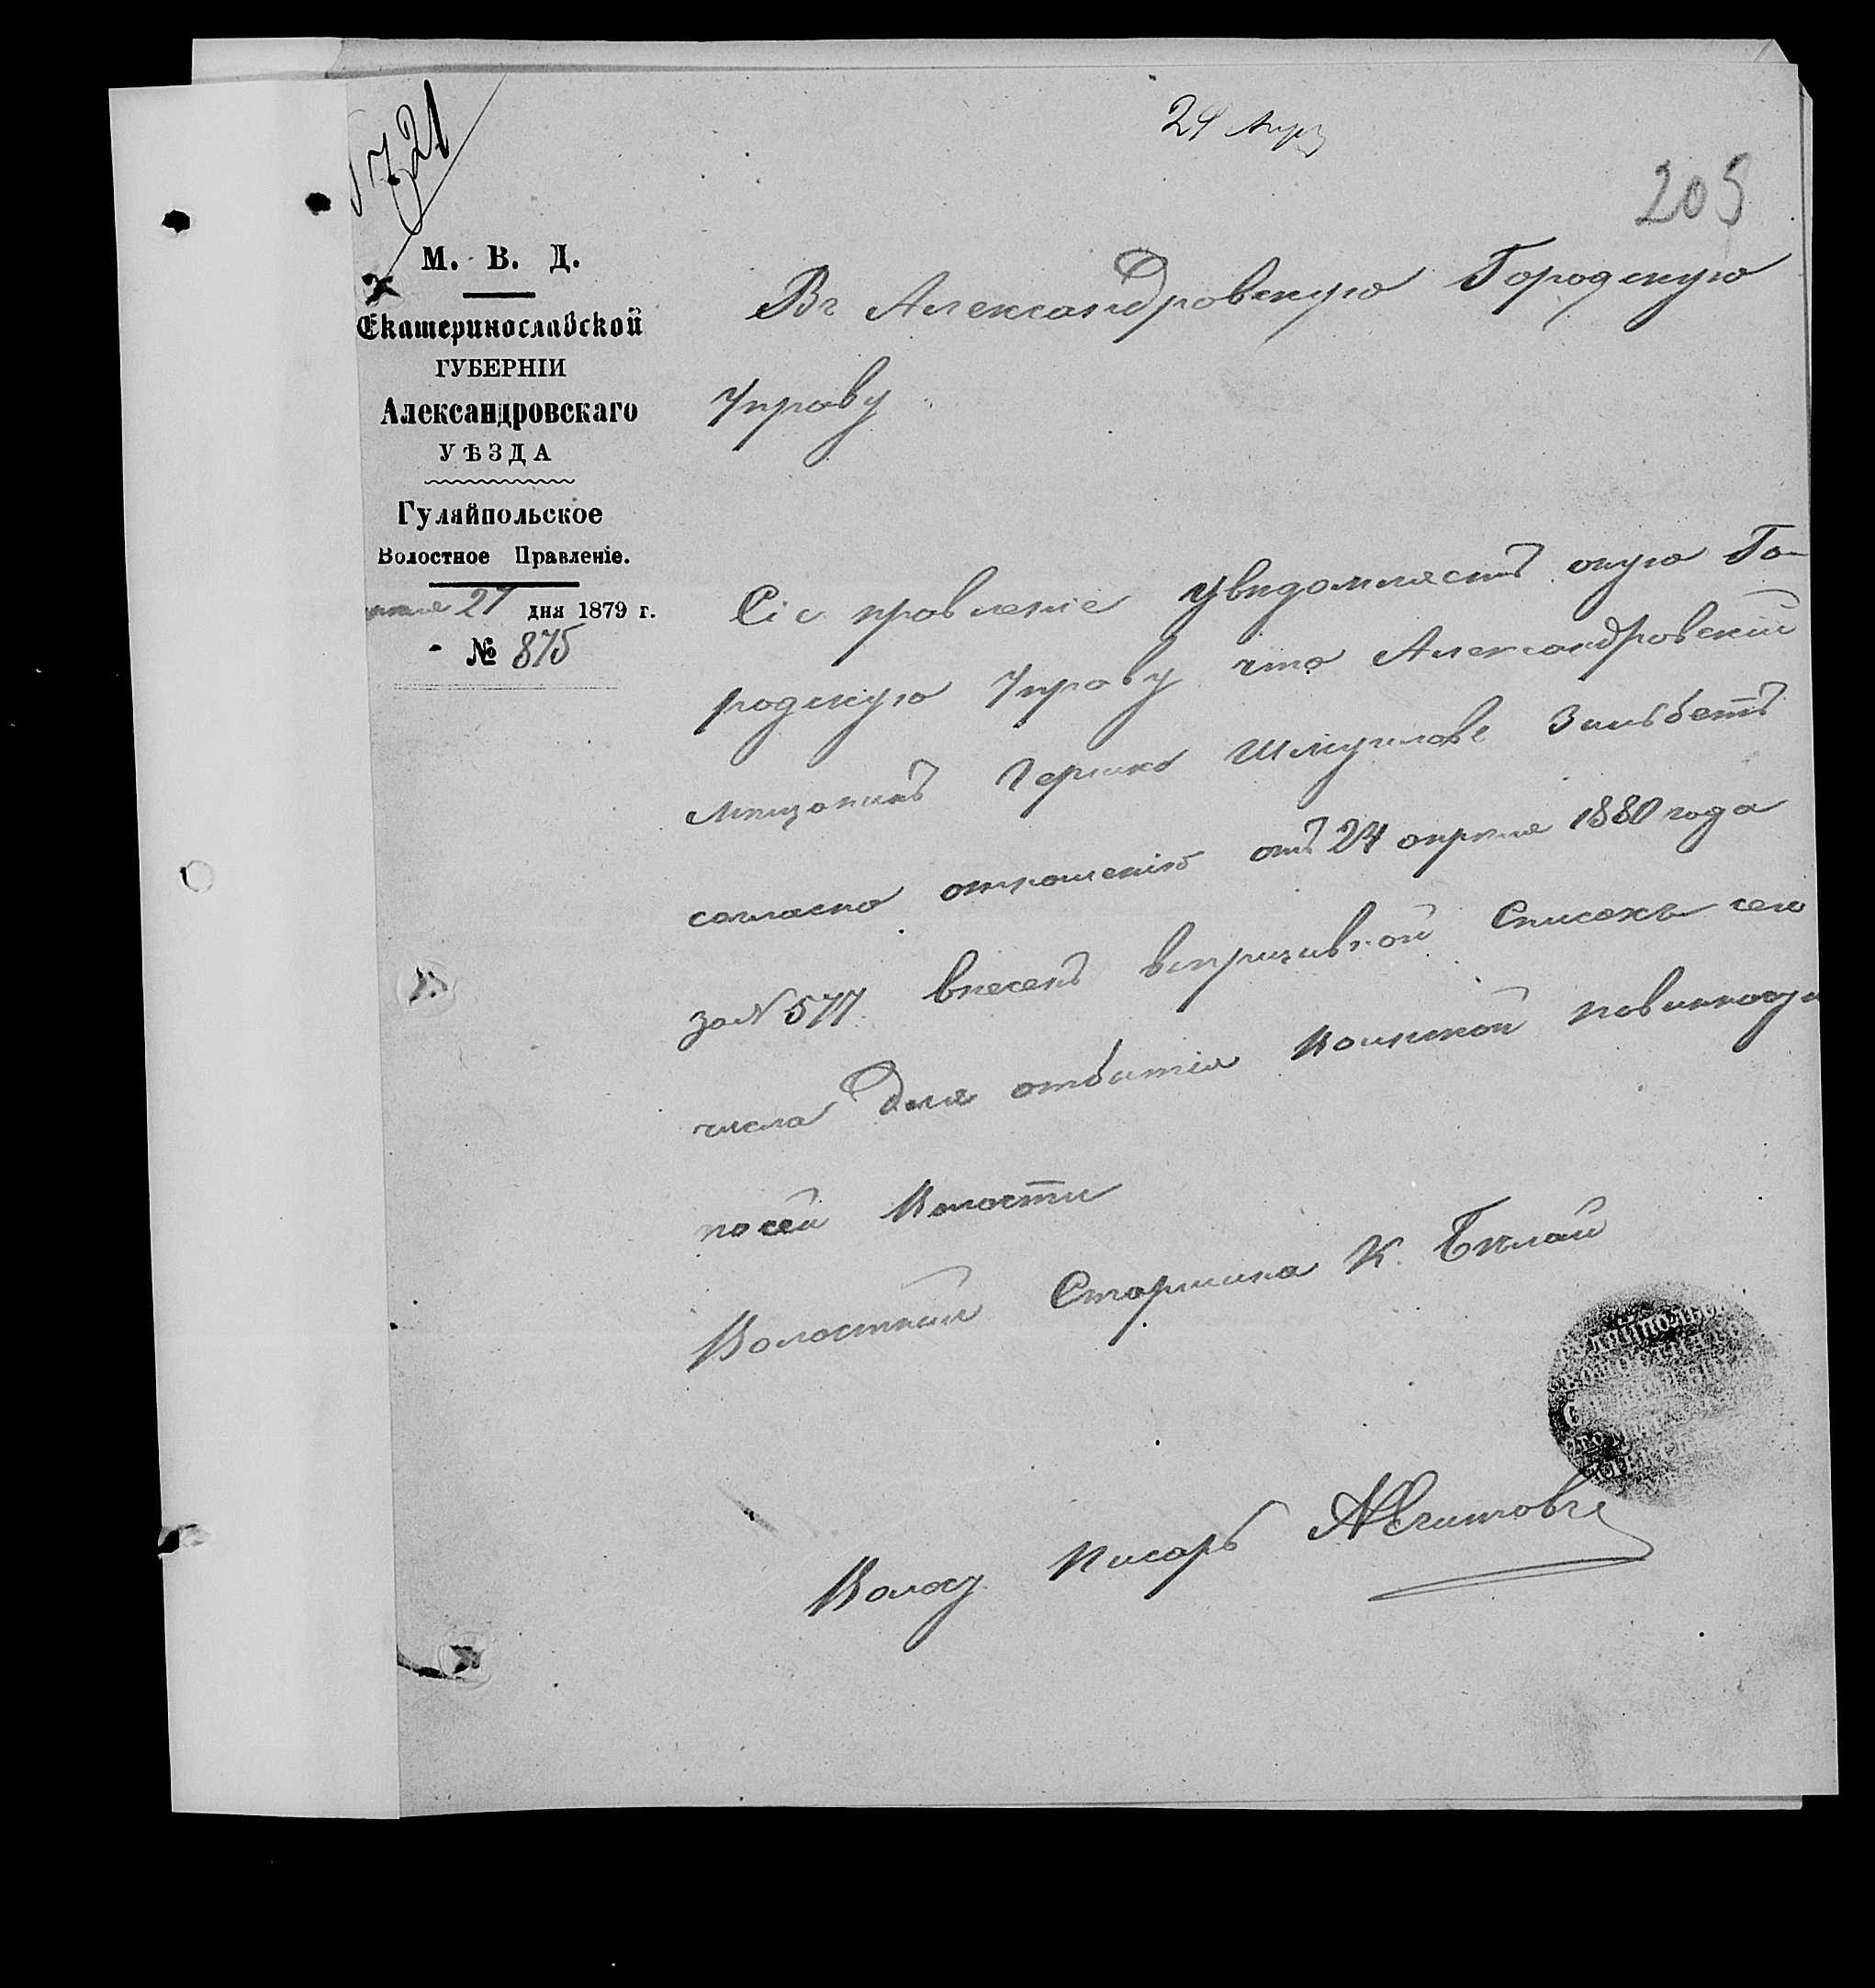 29 Апр
721
205
М. В. Д.
Екатеринославской
ГУБЕРНІИ
Александровскаго
УѢЗДА
Гуляйпольское
Волостное Правленіе.
27 дня 1879 г.
№ 875
Въ Александровскую Городскую
Управу
Сіе правленіе увѣдомляетъ оную Го-
родскую Управу что Александровскій
мѣщанинъ Гершко Шмуилов Зильбетъ
согласно отношенію отъ 24 апрѣля 1880 года
за № 577 внесенъ впризывной Списокъ сего
числа Для отбытія Воинской повинности
по сей Волости
Волостный Старшина К. Бѣлай
Волост Писарь